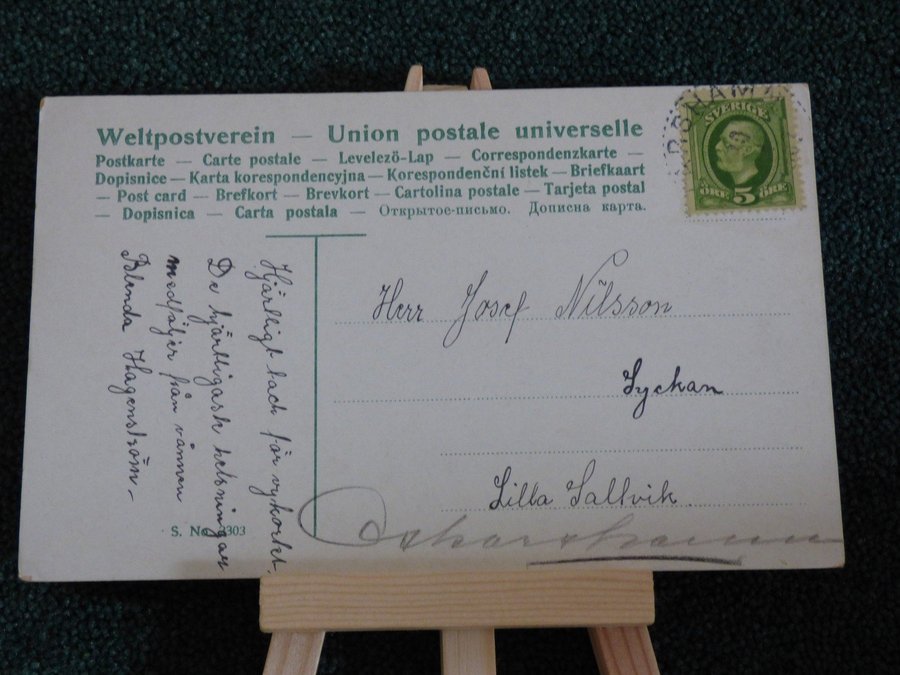 Weltpostverein — Union postale universelle
Postkarte — Carte postale — Levelező-Lap — Correspondenzkarte —
Dopisnice — Karta korespondencyjna — Korespondenční listek — Briefkaart
— Post card — Brefkort — Brevkort — Cartolina postale — Tarjeta postal
— Dopisnica — Carta postala — Открытое-письмо. Дописна карта.
SVERIGE
ÖRE 5 ÖRE
Hjärtligt tack för vykortet.
De hjärtligaste helsningar
medföljer från vännen
Blenda Hagenström —
Herr Josef Nilsson
Lyckan
Lilla Saltvik
Oskarshamn
S. No 3303